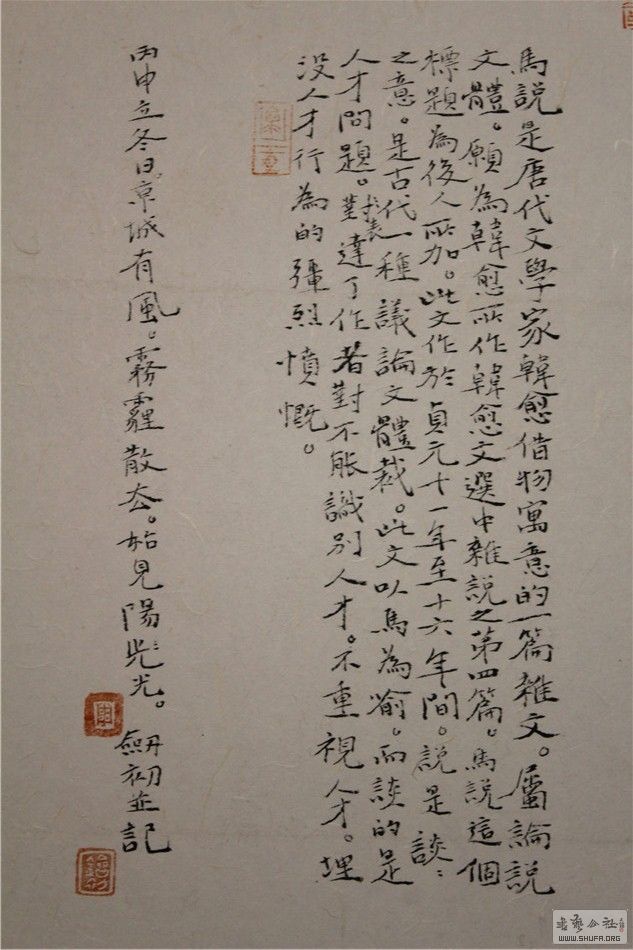 馬說是唐代文學家韓愈借物寓意的一篇雜文。屬論說
文體。願為韓愈所作韓愈文選中雜說之第四篇。馬說這個
標題為後人所加。此文作於貞元十一年至十六年間。說是談:
之意。是古代一種議論文體裁。此文以馬為喻。而談的是
人才問題。對表達了作者對不能識別人才。不重視人才。埋
没人才行為的彊烈憤慨。
丙申立冬日京城有風。霧霾散去。始見陽光。初並記
書藝公社
WWW.SHUFA.ORG